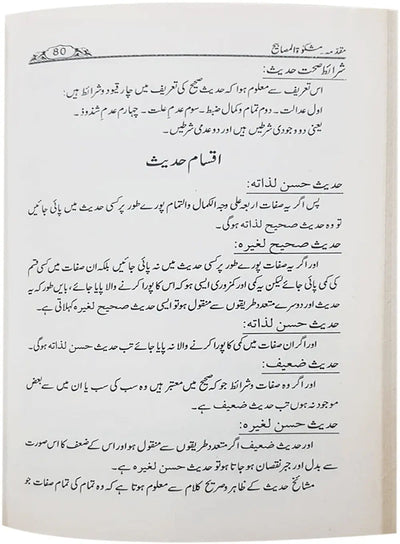 مقدمہ مشکوٰۃ المصابیح
80
شرائط صحت حدیث:
اس تعریف سے معلوم ہوا کہ حدیث صحیح کی تعریف میں چار قیود و شرائط ہیں:
اول عدالت۔ دوم تمام و کمال ضبط۔ سوم عدم علت۔ چہارم عدم شذوذ۔
یعنی دو وجودی شرطیں ہیں اور دو عدمی شرطیں۔
اقسام حدیث
حدیث حسن لذاتہ:
پس اگر یہ صفات اربعہ علی وجہ الکمال والتمام پورے طور پر کسی حدیث میں پائی جائیں
تو وہ حدیث صحیح لذاتہ ہوگی۔
حدیث صحیح لغیرہ:
اور اگر یہ صفات پورے طور پر کسی حدیث میں نہ پائی جائیں بلکہ ان صفات میں کسی قسم
کی کمی پائی جائے لیکن یہ کمی اور کمزوری ایسی ہو کہ اس کا پورا کرنے والا پایا جائے، بایں طور کہ یہ
حدیث اور دوسرے متعدد طریقوں سے منقول ہو تو ایسی حدیث صحیح لغیرہ کہلاتی ہے۔
حدیث حسن لذاتہ:
اور اگر ان صفات میں کمی کا پورا کرنے والا نہ پایا جائے تب حدیث حسن لذاتہ ہوگی۔
حدیث ضعیف:
اور اگر وہ صفات و شرائط جو کہ صحیح میں معتبر ہیں وہ سب کی سب یا ان میں سے بعض
موجود نہ ہوں تب حدیث ضعیف ہے۔
حدیث حسن لغیرہ:
اور حدیث ضعیف اگر متعدد طریقوں سے منقول ہو اور اس کے ضعف کا اس صورت
سے بدل اور جبر نقصان ہو جاتا ہو تو حدیث حسن لغیرہ ہے۔
مشائخ حدیث کے ظاہر و صریح کلام سے معلوم ہوتا ہے کہ وہ تمام کی تمام صفات جو